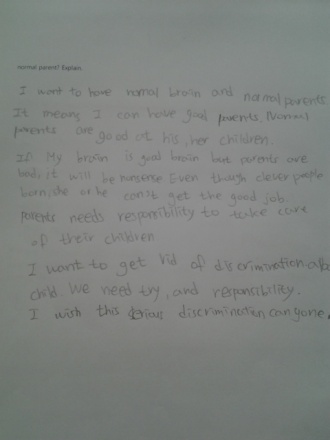 normal parent? Explain
I want to have normal brain and normal parents
It means I can have good parents. Normal
parents are good at his, her children.
If My brain is good brain but parents are
bad, it will be nonsense Even though clever people
born, she or he can't get the good job.
parents needs responsibility to take care
of their children
I want to get rid of discrimination
child. We need try, and responsibility.
I wish this serious discrimination